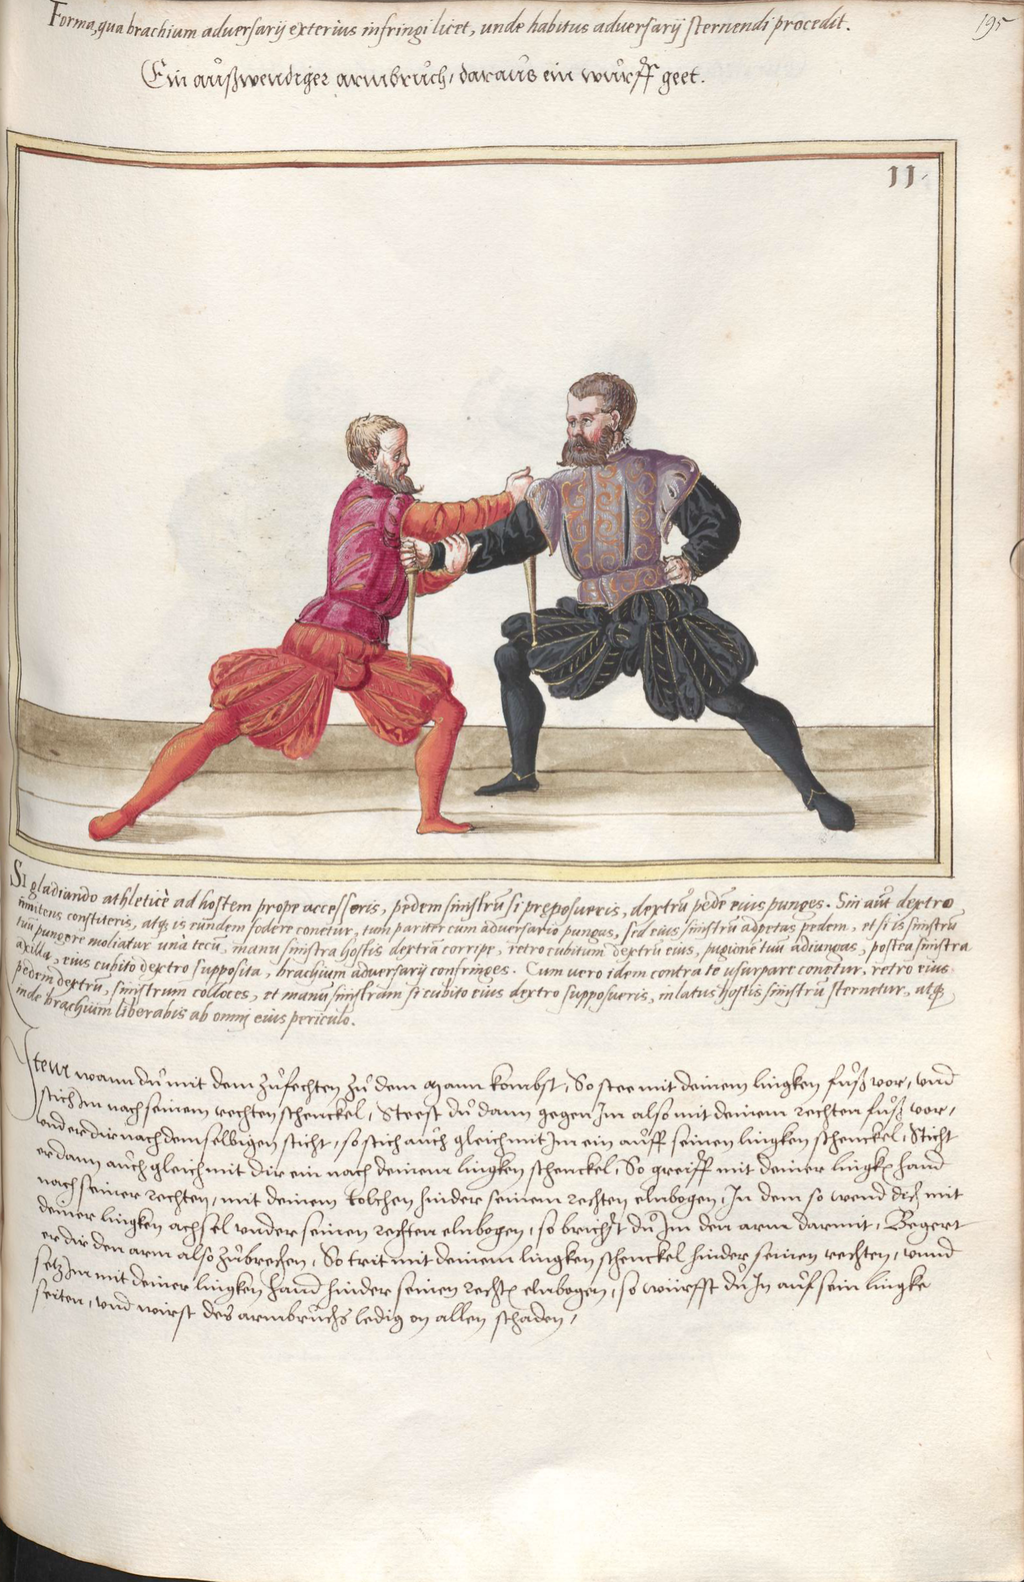 Forma, qua brachium adversarij exterius infringi licet, unde habitus adversarij sternendi procedit.
195
Ein außwendiger armbruch, daraus ein wurff geet.
11.
Si gladiando athleticè ad hostem prope accesseris, pedem sinistrũ si pręposueris, dextrũ pedẽ eius punges. Sin aũt dextro
innitens constiteris, atq, is eũndem fodere conetur, tum pariter cum adversario pungas, sed eius sinistrũ adpetas pedem, et si is sinistrũ
tuũ pungere moliatur unà tecũ, manu sinistra hostis dextrã corripe, retro cubitum dextrũ eius, pugionẽ tuũ adiungas, postea sinistra
axilla, eius cubito dextro supposita, brachium adversarij confringes. Cum vero idem contra te usurpare conetur, retro eius
pedem dextrũ, sinistrum colloces, et manũ sinistram si cubito eius dextro supposueris, in latus hostis sinistrũ sternetur, atq,
inde brachium liberabis ab omni eius periculo.
Item wann du mit dem zufechten zu dem Mann kombst, So stee mit deinem lingken fuß vor, und
stich Im nach seinem rechten schenckel, Steest du dann gegen Im also mit deinem rechten fuß vor,
und er dir nach demselbigen sticht, so stich auch gleich mit Im ein auff seinen lingken schenckel, Sticht
er dann auch gleich mit dir ein nach deinem lingken schenckel, So greiff mit deiner lingkn hand
nach seiner rechten, mit deinem tolchen hinder seinem rechten elnbogen, In dem so wend dich mit
deiner lingken achsel under seinen rechten elnbogen, so brichst du Im den arm darmit, Begert
er dir den arm also zubrechen, So trit mit deinem lingken schenckel hinder seinen rechten, unnd
setz Im mit deiner lingken hand hinder seinen rechtn elnbogen, so würffst du In auf sein lingke
seiten, und wirst des armbruchs ledig on allen schaden,